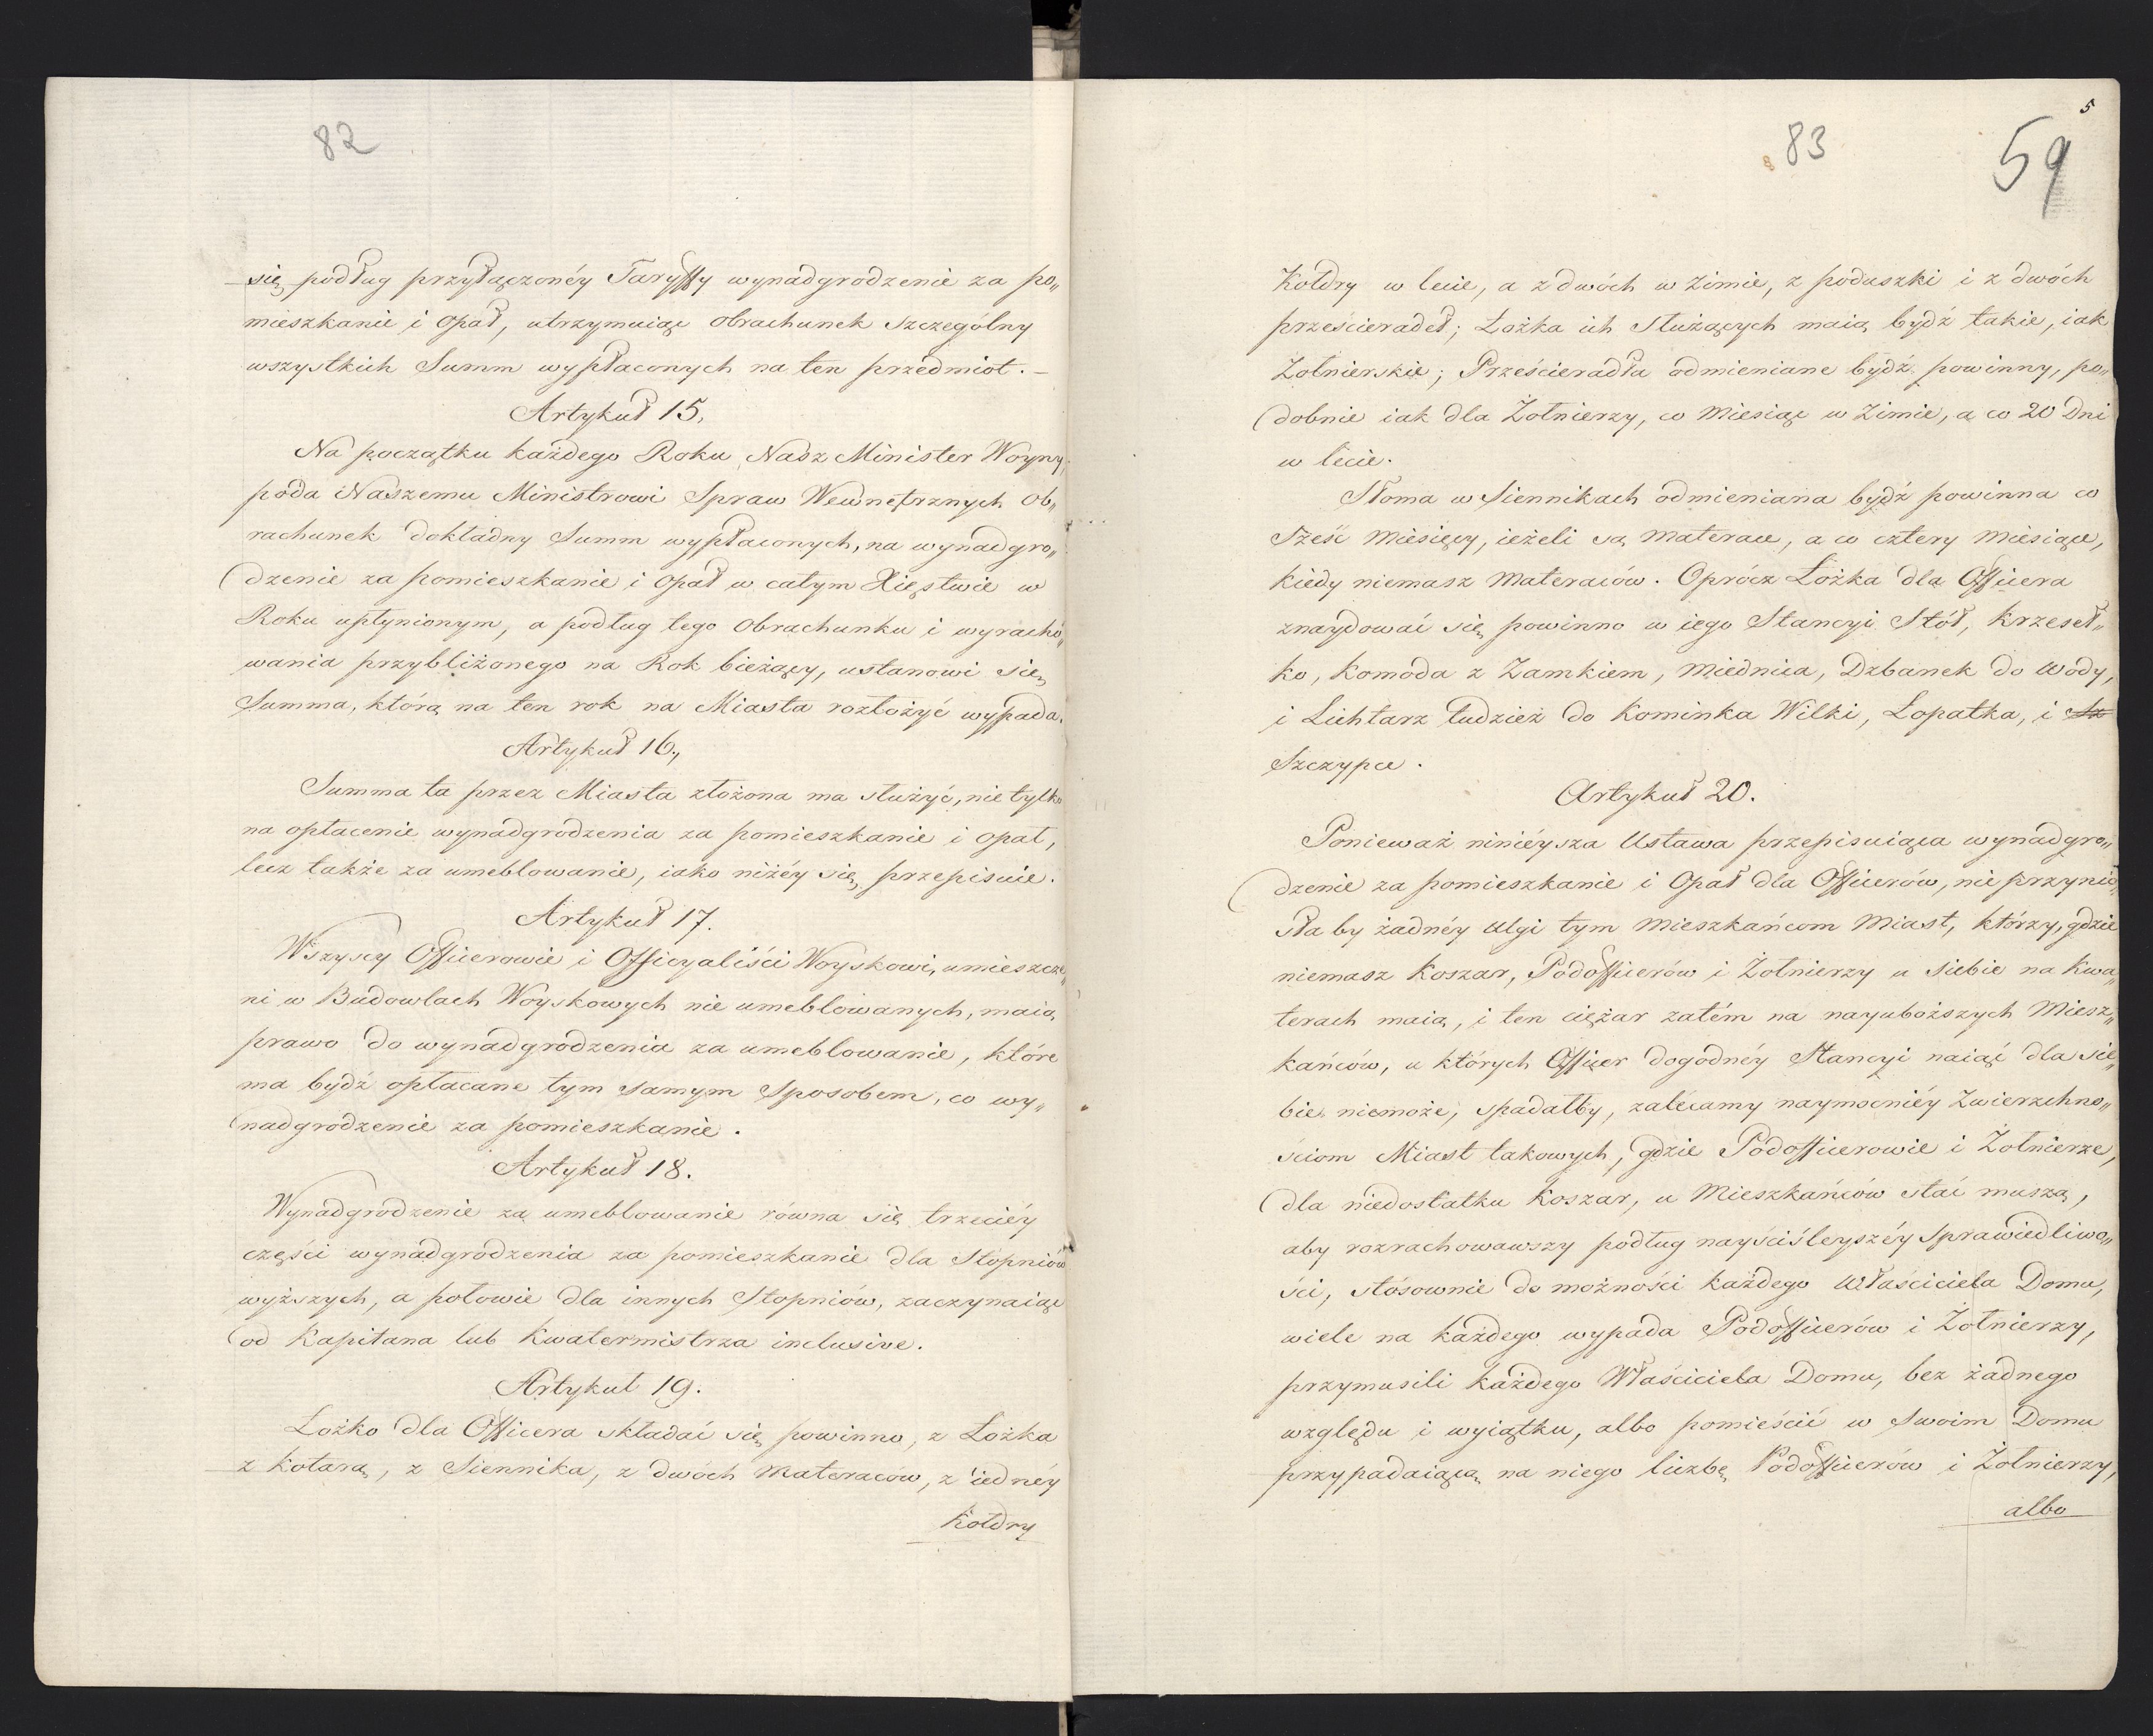 82
się podług przyłączonéy Taryffy wynadgrodzenie za po„
mieszkanie i Opał, utrzymuiąc Obrachunek szczególny
wszystkich Summ wypłaconych na ten przedmiot. –
Artykuł 15.
Na początku każdego Roku, Nasz Minister Woyny
poda Naszemu Ministrowi Spraw Wewnętrznych Ob„
rachunek dokładny Summ wypłaconych, na wynadgro„
dzenie za pomieszkanie i Opał w całym Xięstwie w
Roku upłynionym, a podług tego Obrachunku i wyracho„
wania przybliżonego na Rok bieżący, ustanowi się
Summa, którą na ten rok na Miasta rozłożyć wypada.
Artykuł 16.
Summa ta przez Miasta złożona ma służyć, nie tylko
na opłacenie wynadgrodzenia za pomieszkanie i Opał,
lecz także za umeblowanie, iako niżéy się przepisuie.
Artykuł 17.
Wszyscy Officerowie i Officyaliści Woyskowi, umieszcze„
ni w Budowlach Woyskowych nie umeblowanych, maią
prawo do wynadgrodzenia za umeblowanie, które
ma bydź opłacane tym samym Sposobem, co wy„
nadgrodzenie za pomieszkanie.
Artykuł 18.
Wynadgrodzenie za umeblowanie równa się trzeciéy
części wynadgrodzenia za pomieszkanie dla Stopniów
wyższych, a połowie dla innych Stopniów, zaczynaiąc
od Kapitana lub Kwatermistrza inclusive.
Artykuł 19.
Łożko dla Officera składać się powinno, z Łożka
z kotarą, z Siennika, z dwóch Materaców, z iednéy
Kołdry
5
83
59
Kołdry w lecie, a z dwóch w zimie, z poduszki i z dwóch
prześcieradeł; Łożka ich Służących maią bydź takie, iak
Żołnierskie; Prześcieradła odmieniane bydź powinny, po„
dobnie iak dla Żołnierzy, co Miesiąc w Zimie, a co 20 Dni
w lecie.
Słoma w Siennikach odmieniana bydź powinna co
Sześć Miesięcy, ieżeli są Materace, a co cztery Miesiące,
kiedy niemasz Materaców. Oprócz Łożka dla Officera
znaydować się powinno w iego Stancyi Stół, Krzeseł„
ko, Komoda z Zamkiem, Miednica, Dzbanek do Wody,
i Lichtarz tudzież do Kominka Wilki, Łopatka, i Sz
Szczypce.
Artykuł 20.
Ponieważ ninieysza Ustawa przepisuiąca wynadgro„
dzenie za pomieszkanie i Opał dla Officerów, nie przynio„
sła by żadnéy Ulgi tym Mieszkańcom Miast, którzy, gdzie
niemasz Koszar, Podofficerów i Żołnierzy u siebie na Kwa„
terach maią, i ten ciężar zatém na nayuboższych Miesz„
kańców, u których Officer dogodnéy Stancyi naiąć dla sie„
bie niemoże, spadałby, zalecamy naymocniéy Zwierzchno„
ściom Miast takowych, gdzie Podofficerowie i Żołnierze,
dla niedostatku Koszar, u Mieszkańców stać muszą,
aby rozrachowawszy podług nayściśleyszéy Sprawiedliwo„
ści, stósownie do możności każdego Właściciela Domu,
wiele na każdego wypada Podofficerów i Żołnierzy,
przymusili każdego Właściciela Domu, bez żadnego
względu i wyiątku, albo pomieścić w Swoim Domu
przypadaiącą na niego liczbę Podofficerów i Żołnierzy,
albo